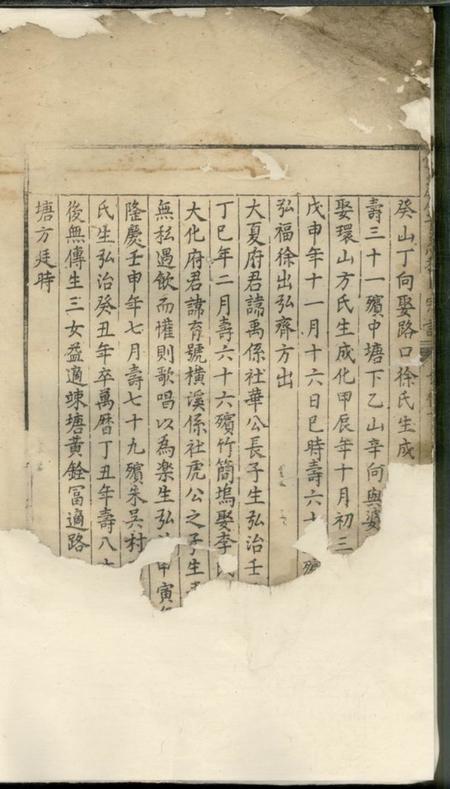 癸山丁向娶路口徐氏生成
壽三十一殯中塘下乙山辛向與婆
娶環山方氏生成化甲辰年十月初三
戊申年十一月十六日巳時壽六十
弘福徐出弘齊方出
大夏府君諱禹係社華公長子生弘治壬
丁巳年二月壽六十六殯竹簡塢娶李氏
大化府君諱育號橫溪係社虎公之子生
無私遇飲而懽則歌唱以為樂生弘治甲寅
隆慶壬申年七月壽七十九殯朱吳村
氏生弘治癸丑年卒萬曆丁丑年壽八十
後無傳生三女益適竦塘黃銓冨適路
塘方廷時